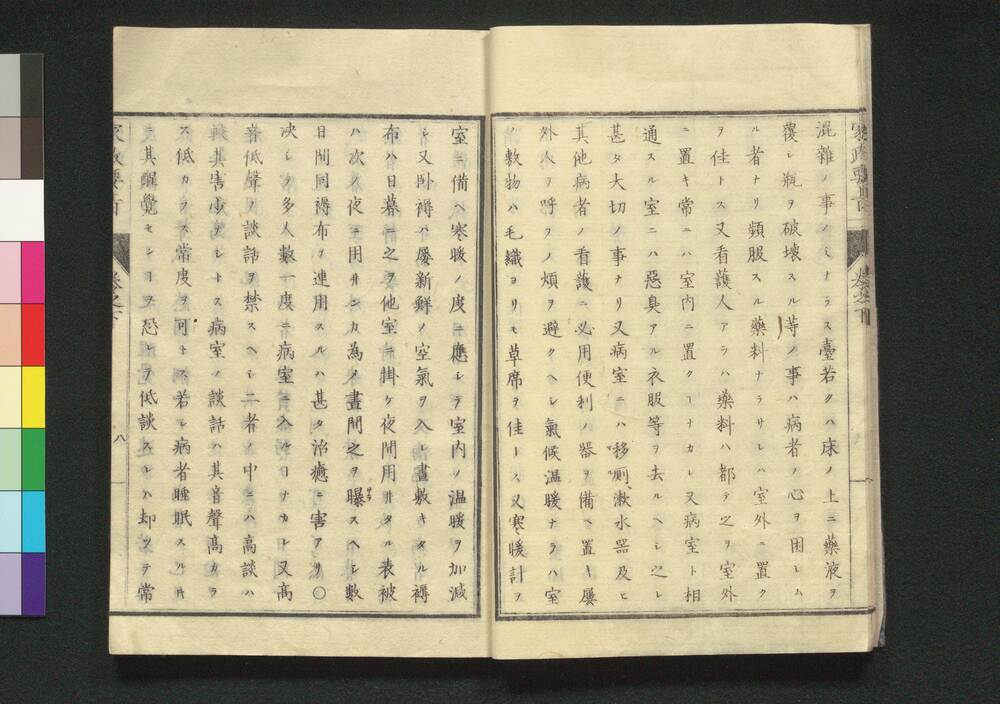 混雜ノ事ノミナラス臺若クハ床ノ上ニ藥液ヲ
覆シ瓶ヲ破壊スル等ノ事ハ病者ノ心ヲ困シム
ル者ナリ頻服スル藥料ナラサレハ室外ニ置ク
ヲ佳トス又看護人アラハ藥料ハ都テ之ヲ室外
ニ置キ常ニハ室内ニ置クーナカレ又病室ト相
通スル室ニハ惡臭アル衣服等ヲ去ルヘシ之レ
甚タ大切ノ事ナリ又病室ニハ移厠、漱水器及ヒ
其他病者ノ看護ニ必用便利ノ器ヲ備ヘ置キ屢
外人ヲ呼フノ煩ヲ避クヘシ氣候温暖ナラハ室
ノ敷物ハ毛織ヨリモ草席ヲ佳トス又寒暖計ヲ
室ニ備ヘ寒暖ノ度ニ應シテ室内ノ温暖ヲ加減
シ又卧褥ハ屢新鮮ノ空氣ヲ入レ晝敷キタル褥
布ハ日暮ニ之ヲ他室ニ掛ケ夜間用井タル表被
ハ次ノ夜ニ用井ンカ為メ晝間之ヲ曝スヘシ數
日間同褥布ヲ連用スルハ甚タ治癒ニ害アリ○
决シテ多人數一度ニ病室ニ入ルヿナカレ又高
音低聲ノ談話ヲ禁スヘシ二者ノ中ニハ高談ハ
較其害少ナシトス病室ノ談話ハ其音聲髙カラ
ス低カラス常度ヲ可トス若シ病者睡眠スルキ
ニ其醒覺センヿヲ恐レテ低談スレハ却ツテ常
家政要旨 卷之下 八